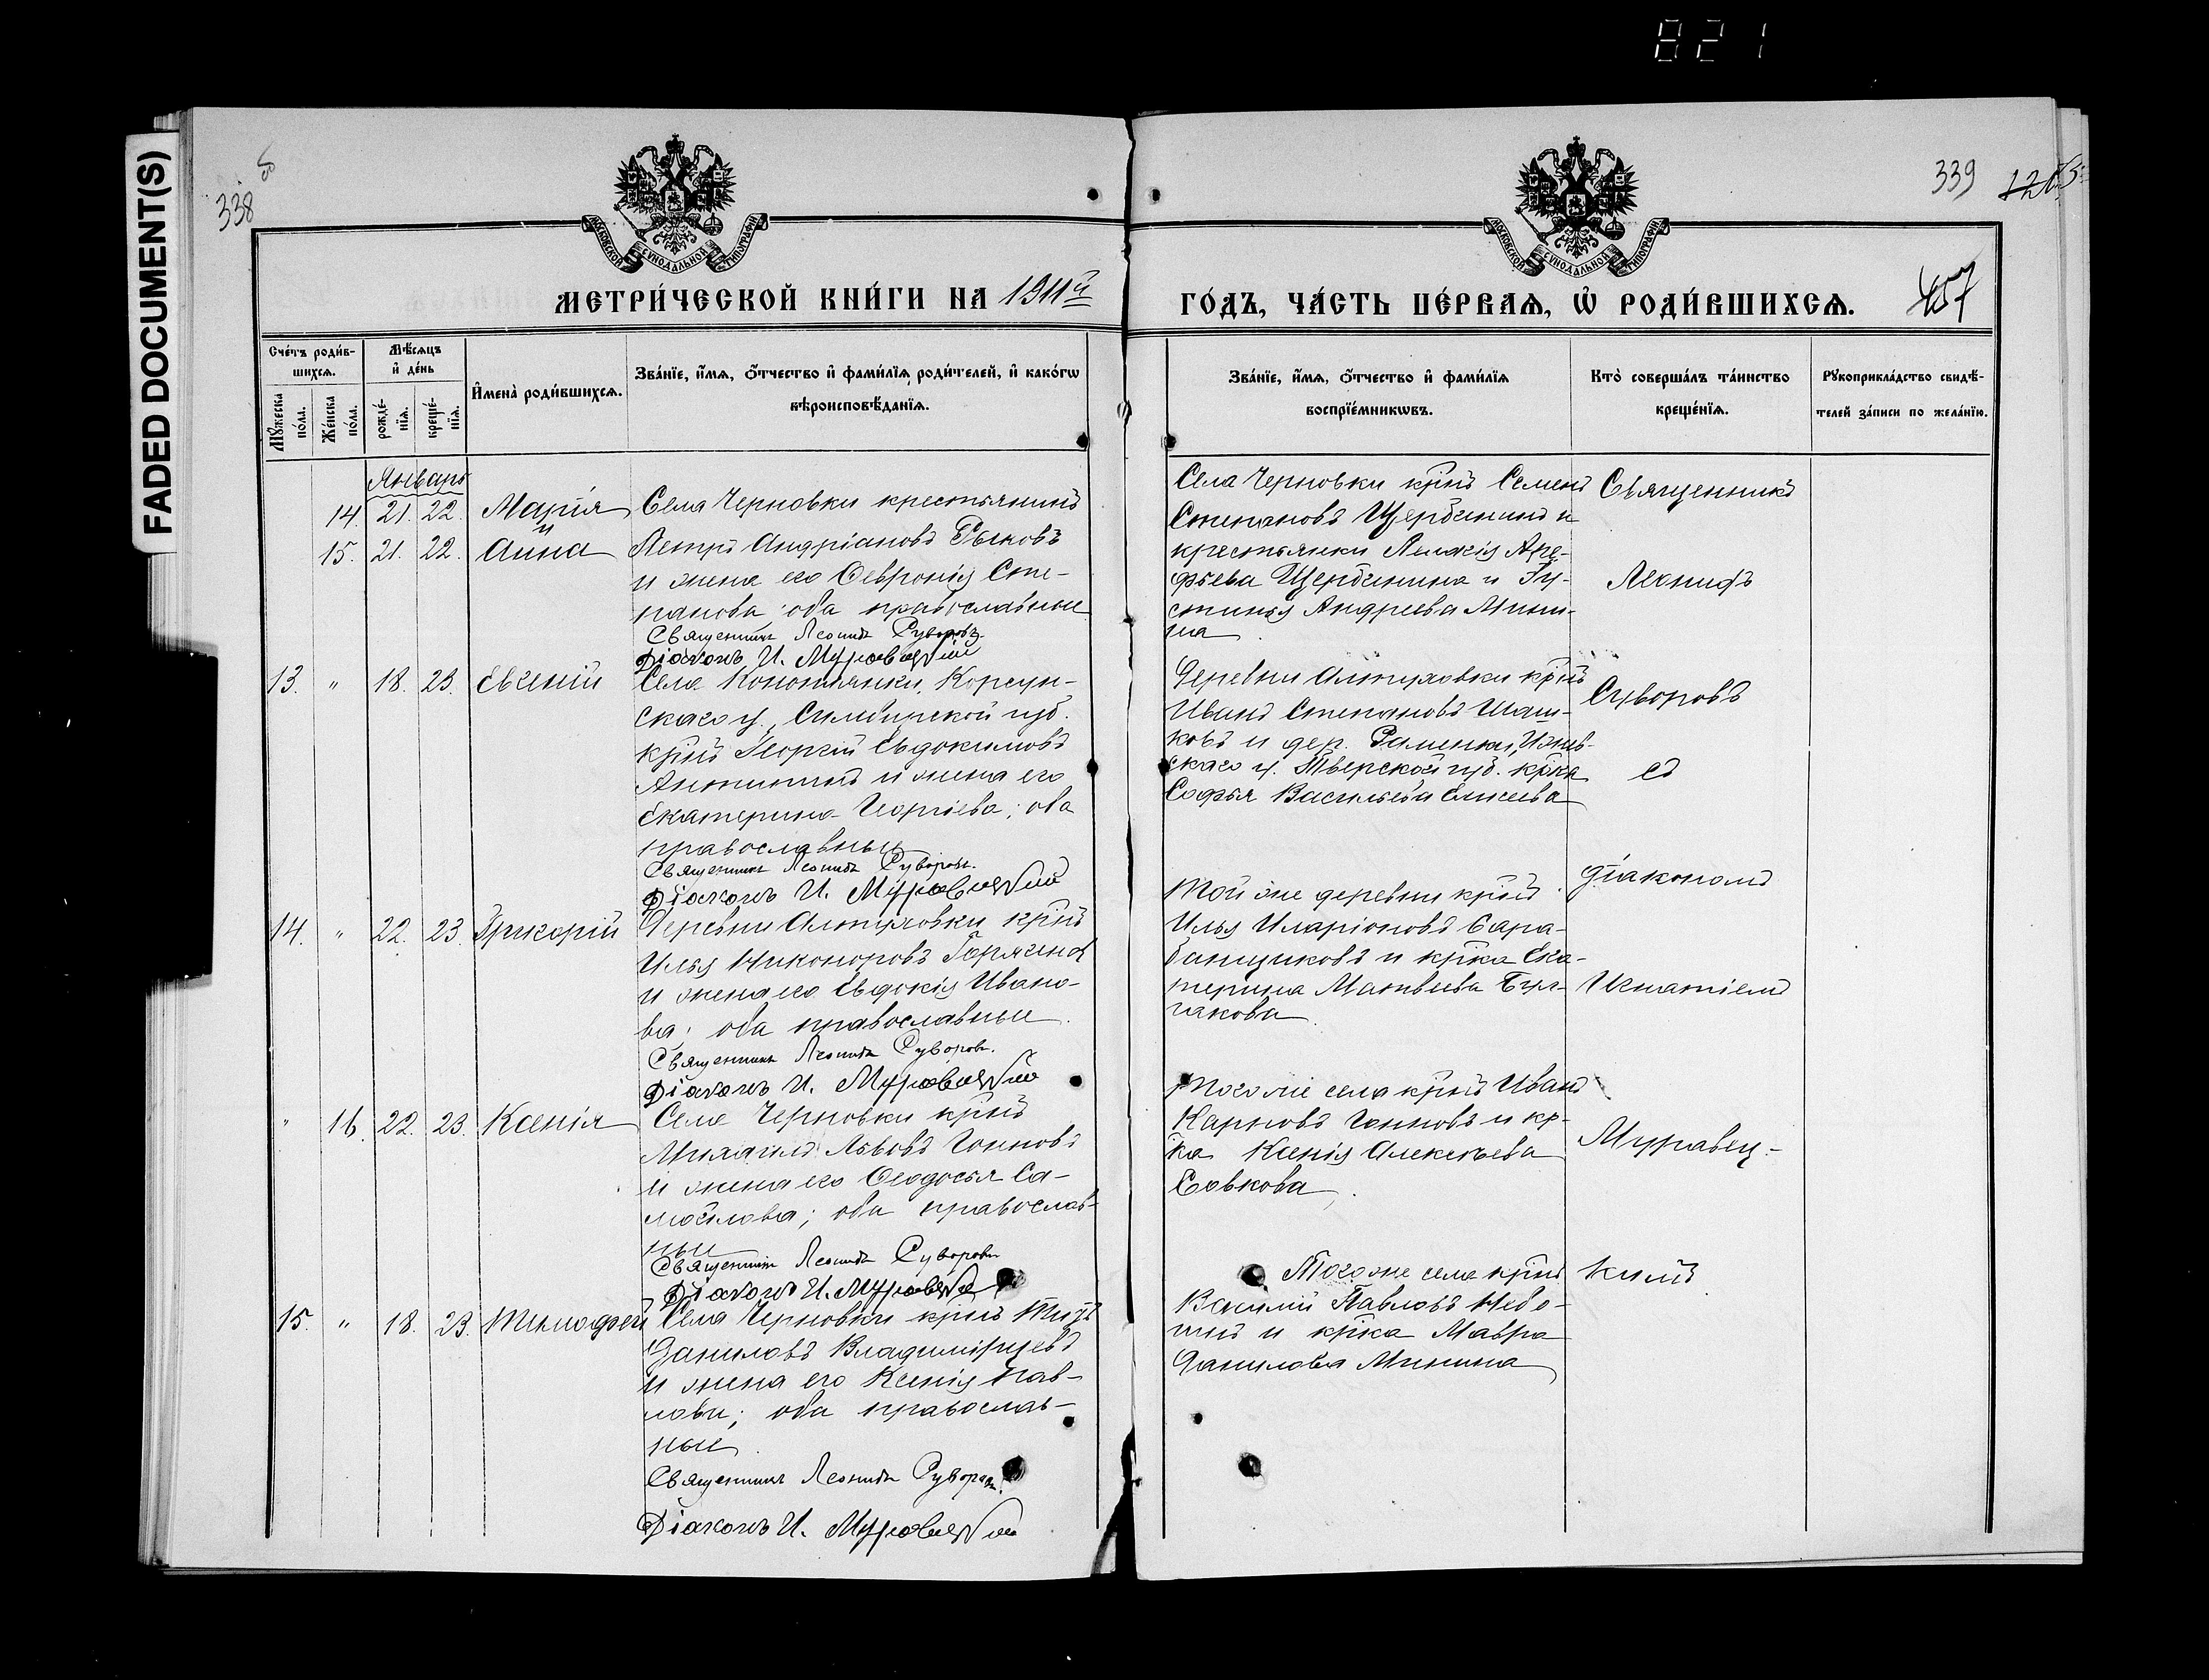 821
FADED DOCUMENT(S)
338
339
МОСКОВСКОЙ СѴНОДАЛЬНОЙ ТИПОГРАФІИ
МОСКОВСКОЙ СѴНОДАЛЬНОЙ ТИПОГРАФІИ
МЕТРИ́ЧЕСКОЙ КНИ́ГИ НА 1911й
ГО́ДЪ, ЧА́СТЬ ПЕ́РВАѦ, Ѡ҆ РОДИ́ВШИХСѦ.
457
Сче́тъ роди́в-
шихсѧ.
Мꙋ́жеска по́ла.
Же́нска по́ла.
Мѣ́сѧцъ
и҆ де́нь
рожде́-
нїѧ.
креще́-
нїѧ.
И҆мена̀ роди́вшихсѧ.
Зва́нїе, и҆́мѧ, ѻ҆́тчество и҆ фами́лїѧ роди́телей, и҆ како́гѡ
вѣроисповѣ́данїѧ.
Зва́нїе, и҆́мѧ, ѻ҆́тчество и҆ фами́лїѧ
воспрїе́мникѡвъ.
Кто̀ соверша́лъ та́инство
креще́нїѧ.
Рꙋкоприкла́дство свидѣ́-
телей за́писи по жела́нїю.
Январь
14. 21. 22. Марія
и
15. 21. 22. Анна
Села Черновки крестьянинъ
Петръ Андріановъ Рыковъ
и жена его Ѳевронія Сте-
панова; оба православные
Священникъ Леонидъ Суворовъ.
Діаконъ И. Муравецкій
Села Черновки кр̃нъ Семенъ
Степановъ Щербининъ и
крестьянки Пелагія Аре-
фьева Щербинина и Іу-
стинія Андреева Мини-
на
13. " 18. 23. Евгеній
Села Коноплянки, Корсун-
скаго у., Симбирской губ.
кр̃нъ Георгій Евдокимовъ
и жена его
Екатерина Георгіева; оба
православные
Священникъ Леонидъ Суворовъ.
Діаконъ И. Муравецкій
Деревни Алтуховки кр̃нъ
Иванъ Степановъ Шаш-
ковъ и дер. Раменки,
скаго у. Тверской губ. кр̃ка
Софья Васильева Елисеева
14. " 22. 23. Григорій
Деревни Алтуховки кр̃нъ
Илья Никоноровъ Горячевъ
и жена его Евдокія Ивано-
ва; оба православные.
Священникъ Леонидъ Суворовъ.
Діаконъ И. Муравецкій
Той же деревни кр̃нъ
Илья Иларіоновъ Бара-
банщиковъ и кр̃ка Ека-
терина Матвеева Бул-
гакова.
" 16. 22. 23. Ксенія
Села Черновки кр̃нъ
Михаилъ Львовъ Гонновъ
и жена его Ѳеодосья Са-
мойлова; оба православ-
ные
Священникъ Леонидъ Суворовъ
Діаконъ И. Муравецкій
Того же села кр̃нъ Иванъ
Карповъ Гонновъ и кр-
ка Ксенія Алексеева
Бовкова.
15. " 18. 23. Тимофей
Села Черновки кр̃нъ Титъ
Даниловъ Владимірцевъ
и жена его Ксенія Пав-
лова; оба православ-
ные.
Священникъ Леонидъ Суворовъ.
Діаконъ И. Муравецкій
Того же села кр̃нъ
Василій Павловъ
и кр̃ка Мавра
Данилова Минина
Священникъ
Леонидъ
Суворовъ
съ
діакономъ
Игнатіемъ
Муравец-
кимъ